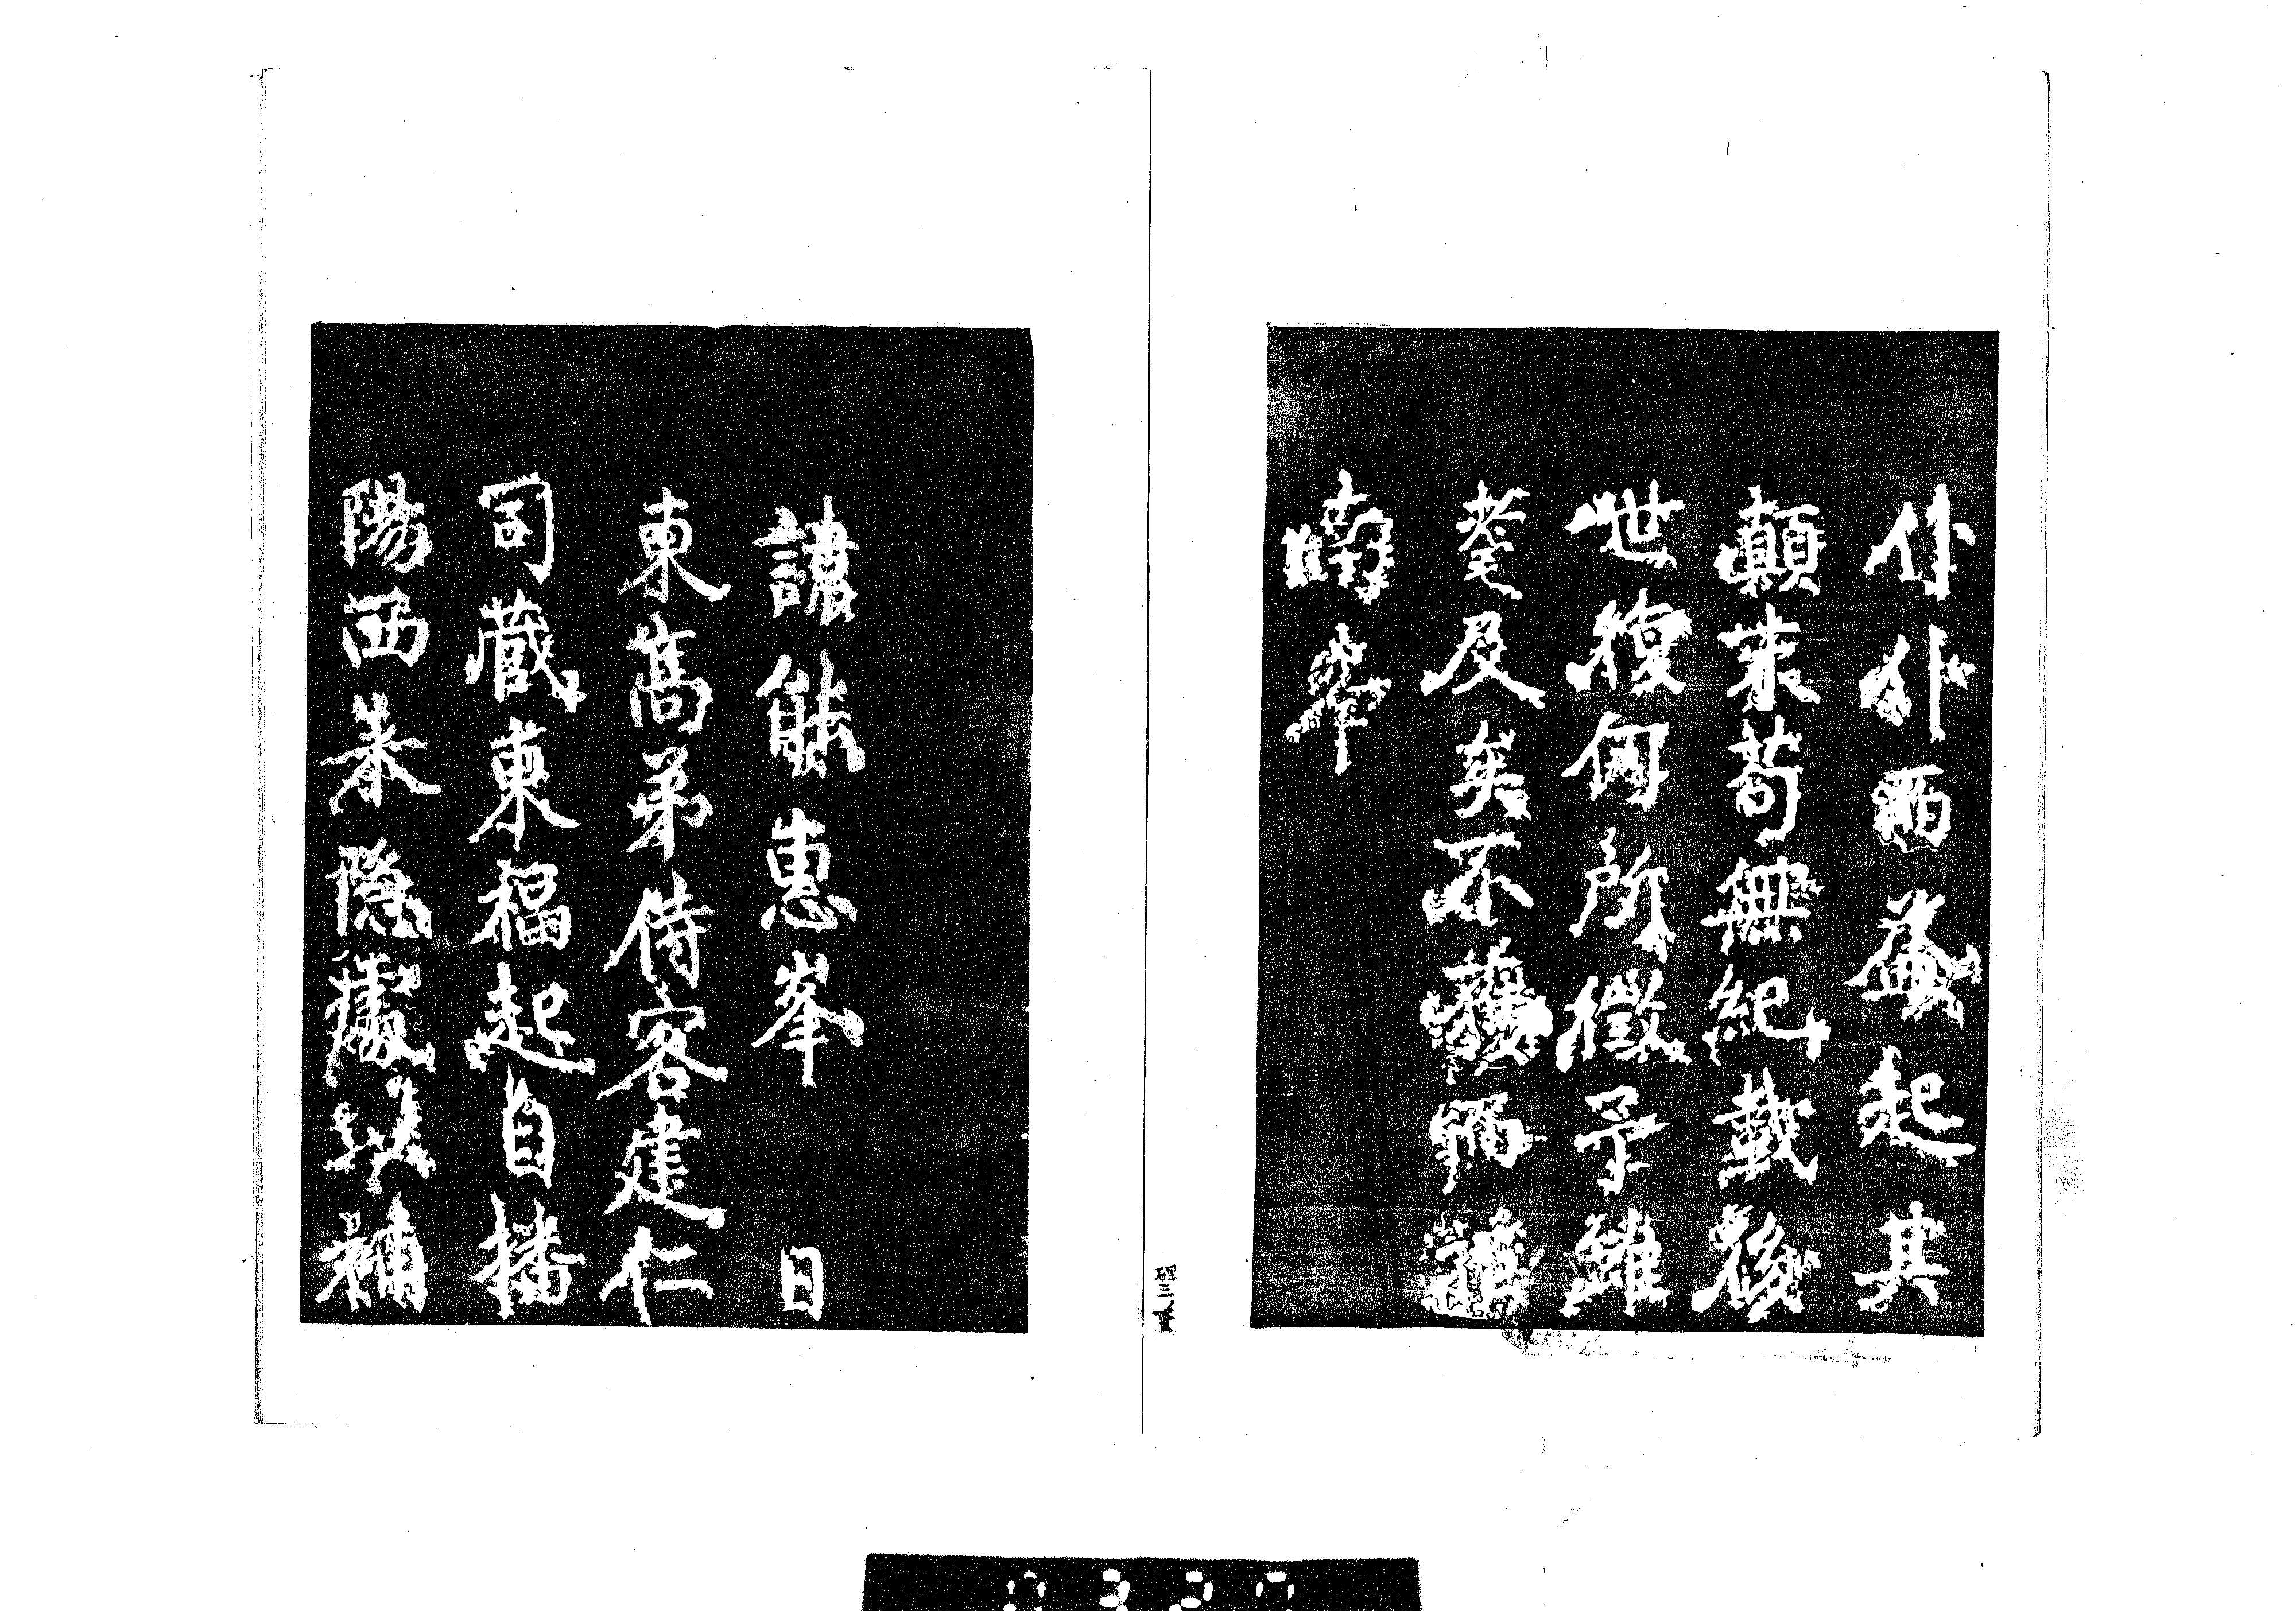 仆補而益起其
顛末苟無紀載後
世復何所徵予雖
耄及矣不
南峯
諱能惠峯 日
東高弟侍客建仁
司藏東福起自播
陽西來隱以補
0320